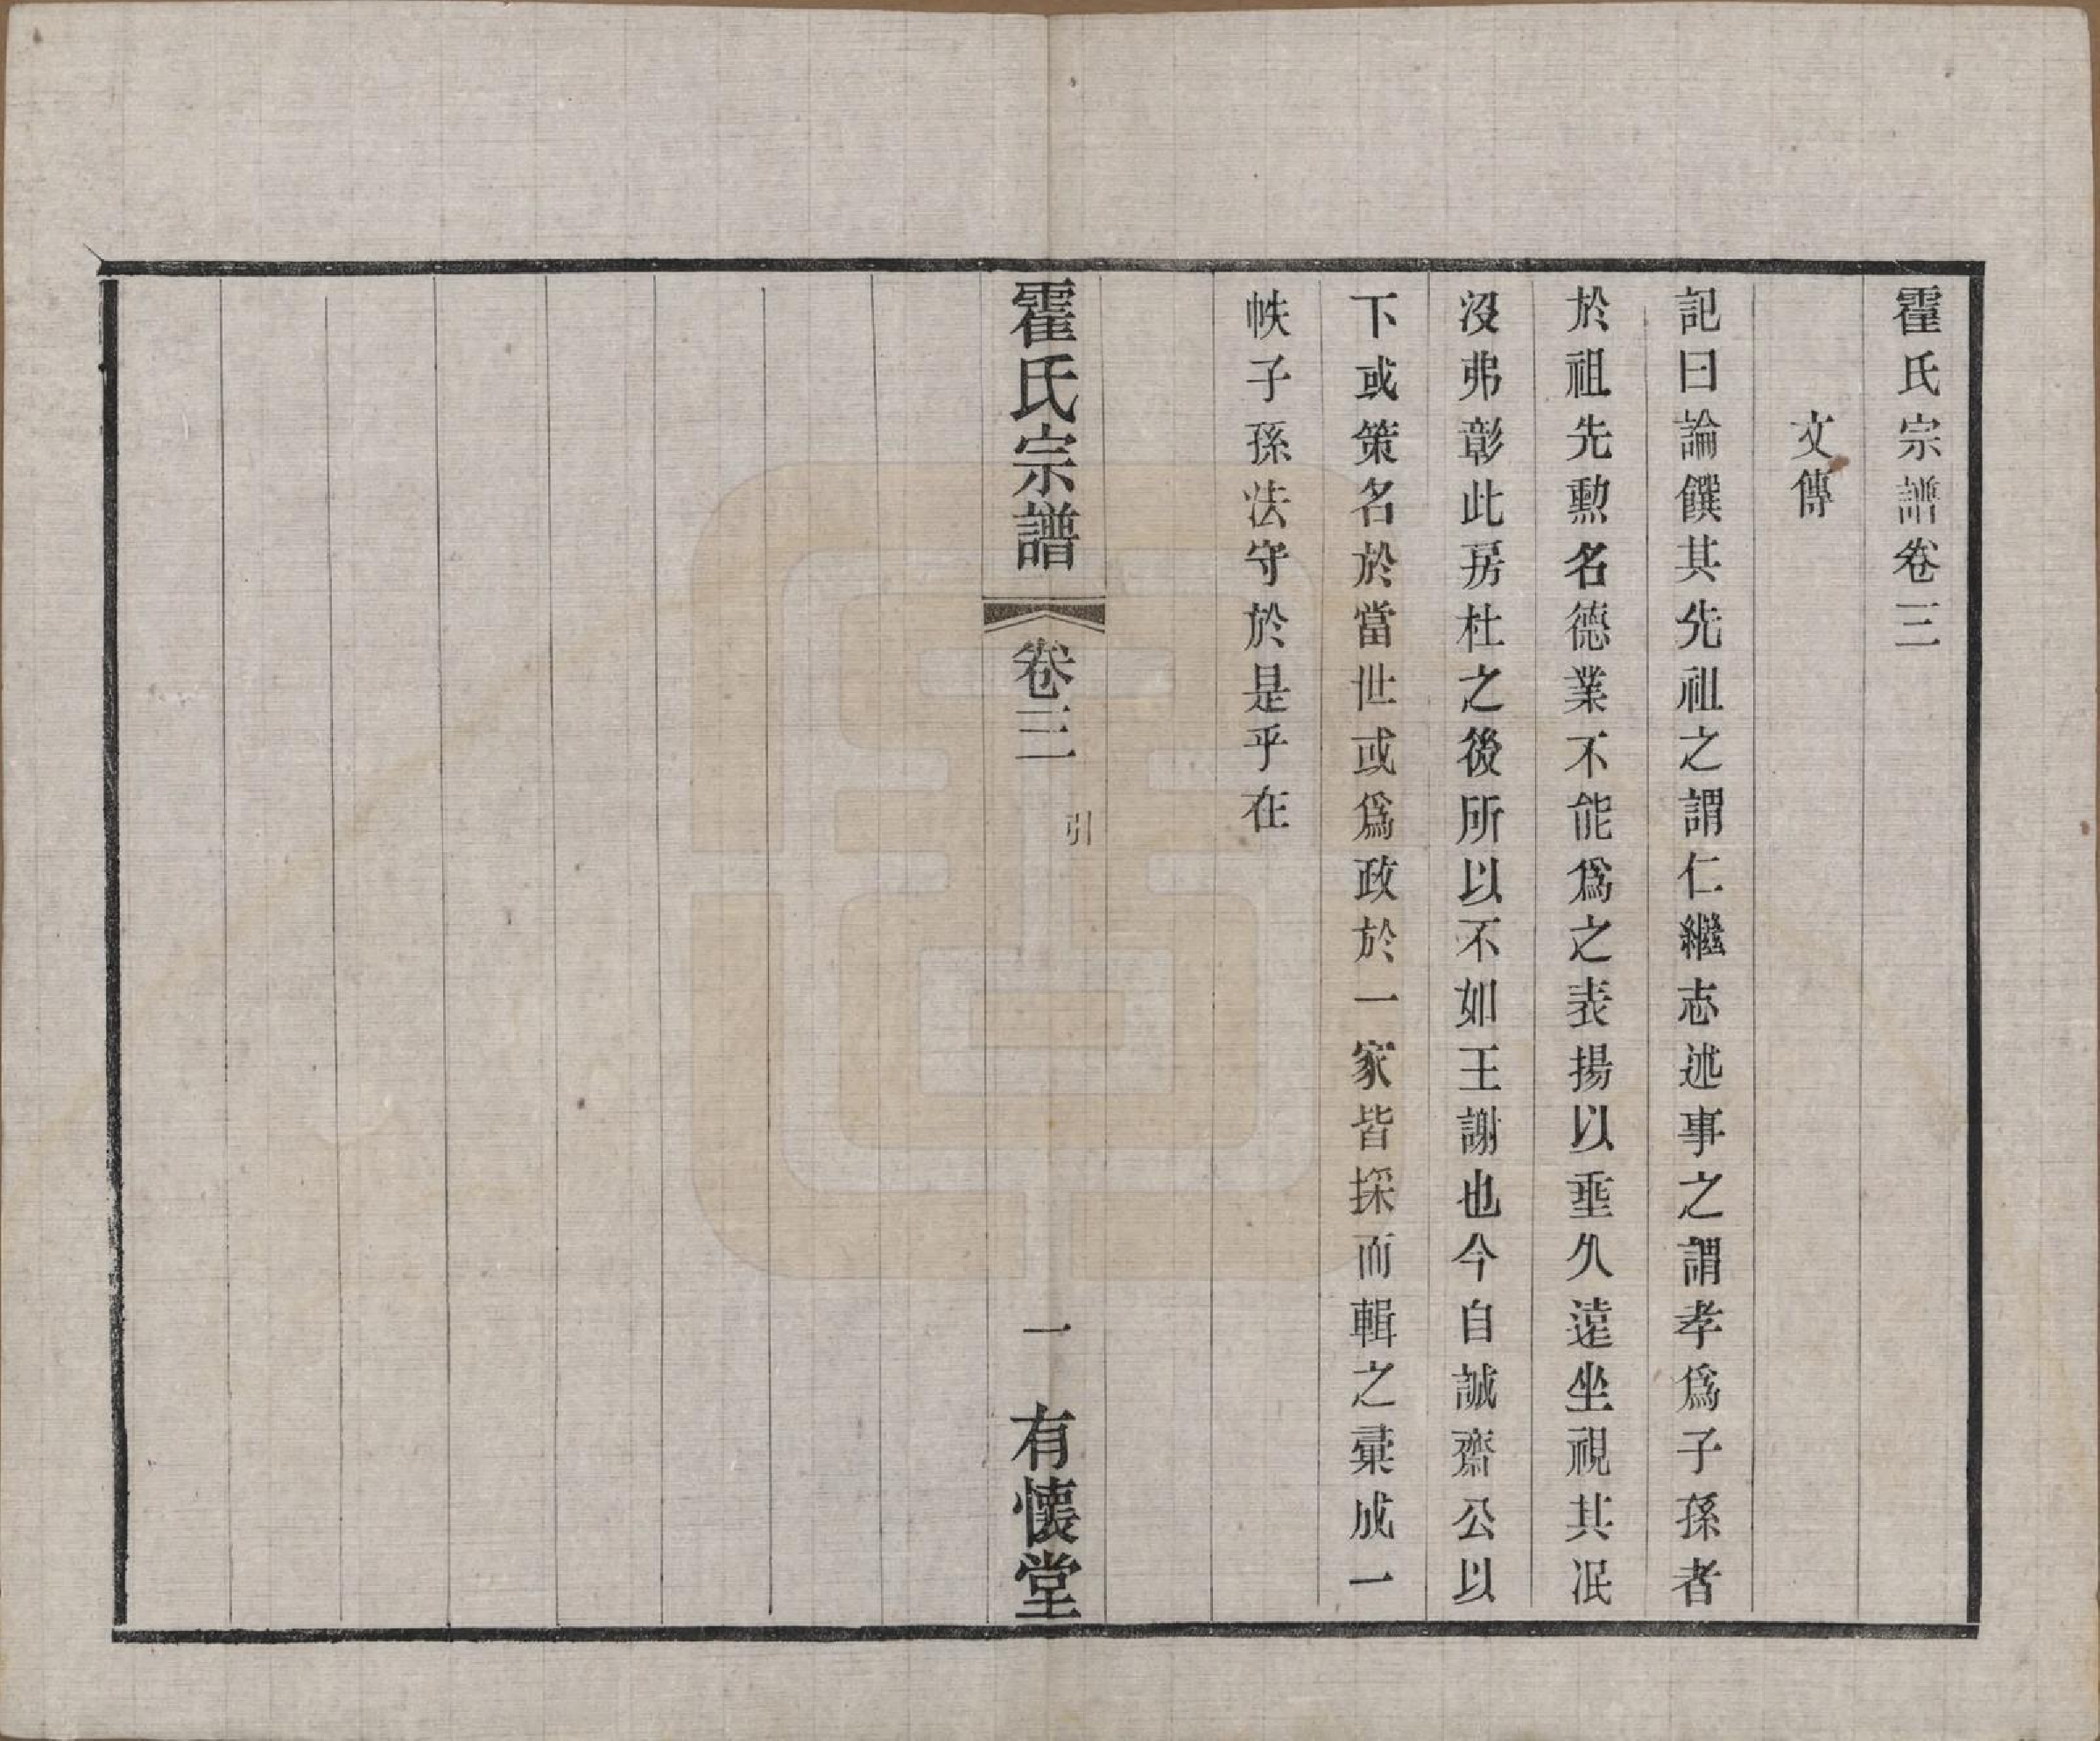 霍氏宗譜卷三
文傳
記曰論饌其先祖之謂仁繼志述事之謂孝爲子孫者
於祖先勲名德業不能爲之表揚以垂久遠坐視其泯
沒弗彰此房杜之後所以不如王謝也今自誠齋公以
下或策名於當世或爲政於一家皆採而輯之彚成一
帙子孫法守於是乎在
霍氏宗譜
卷三
引
一
有懷堂